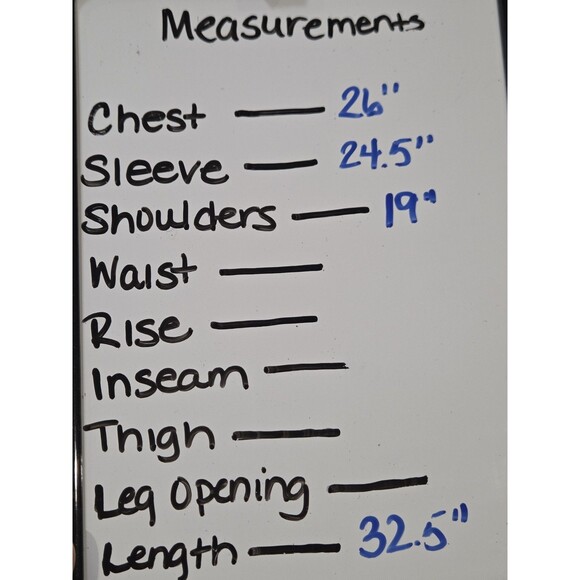 Measurements
Chest — 26"
Sleeve — 24.5"
Shoulders — 19"
Waist —
Rise —
Inseam —
Thigh —
Leg Opening —
Length — 32.5"